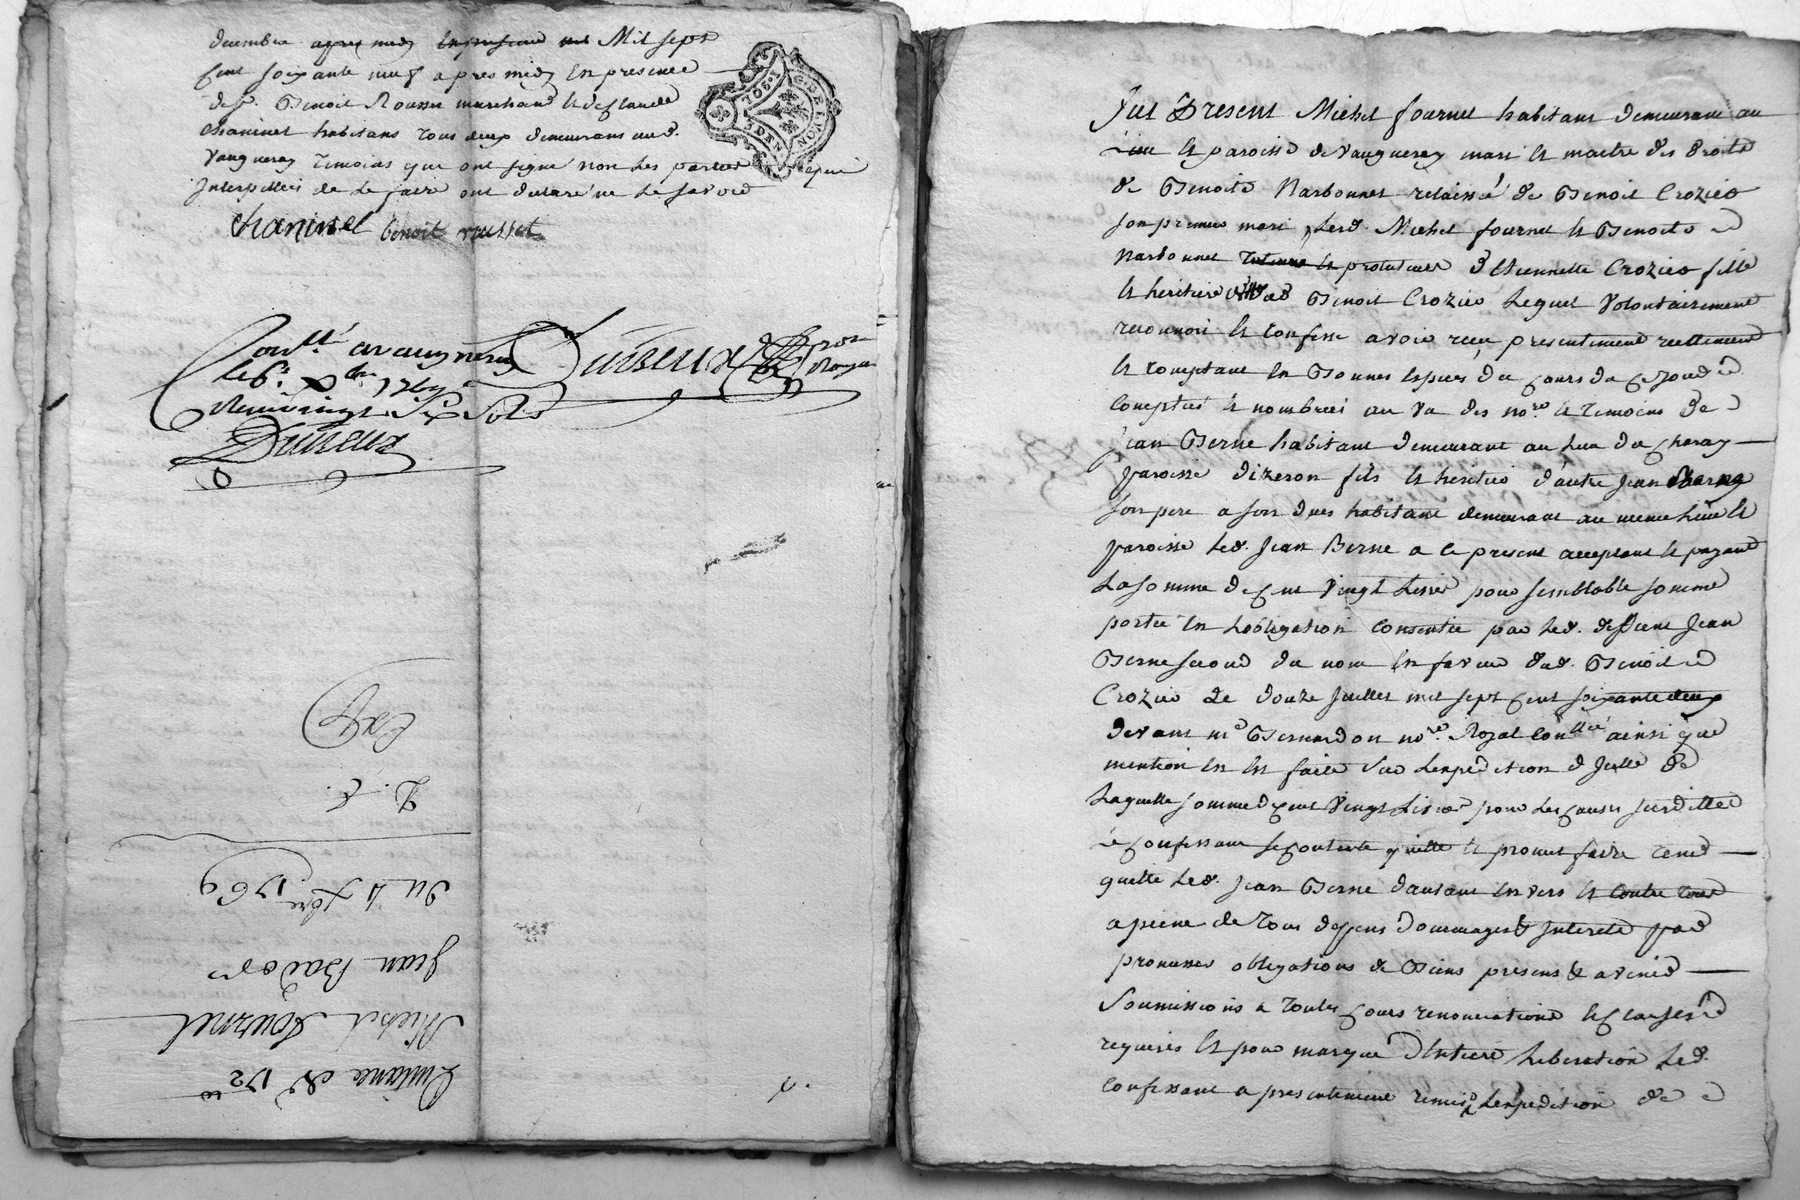 decembre apres midy en presence Mil sept
Cent soixante neuf apres midy En presence
de sr. Benoit Rousset marchand & de Claude
Chaninel habitans tous deux demeurans aud.
Vaugneray temoins que ont signé non les parties qui
Interpellées de le faire ont declaré ne le savoir
Chaninel benoit rousset
Conllé a vaugneray
le 6e Xbre 1769
Reçu vingt Six Sols
Duiseux
Duiseux
G. DE LYON
3 DEN
Quittance de 120
Michel Fournel
Jean Badoy
Du 4 Xbre 1769
Exp
Fut Present Michel fournel habitant demeurant au
Lieu & paroisse de Vaugneray mari & maitre des droits
de Benoite Narbonnet relaissée de Benoit Crozier
son premier mari, Led. Michel fournel & Benoite
Narbonnet tuteurs & protuteurs d'Etiennette Crozier fille
& heritiere dud. Benoit Crozier Lequel Volontairement
reconnoit & confesse avoir reçu presentement reellement
& comptant En Bonnes Especes du Cours de Ce Jour
Comptées & nombrées au vu des nores & temoins de
Jean Berne habitant demeurant au Lieu du Cheray
paroisse d'izeron fils & heritier d'autre Jean Berne
son pere a son vivant habitant demeurant au meme Lieu &
paroisse Led. Jean Berne a ce present acceptant & payant
La somme de Cent Vingt Livres pour semblable somme
portée En Lobligation Consentie par Led. deffunt Jean
Berne second du nom En faveur dud. Benoit
Crozier Le douze Juillet mil sept Cent soixante deux
devant me Bernardon nore. Royal Conllée ainsi que
mention En Est faite sur Lexpedition d'Jcelle de
Laquelle somme de Cent Vingt Livres pour Les Causes susdittes
Le Confessant se Contente quitte & promet faire tenir
quitte Led. Jean Berne d'autant Envers & Contre tous
a peine de tous depens Dommages & Interets par
promesses obligations de Biens presens & avenir
Soumissions a toutes Cours renonciations & Clauses
requises Et pour marque d'Entiere Liberation Led.
Confessant a presentement remis Lexpedition de